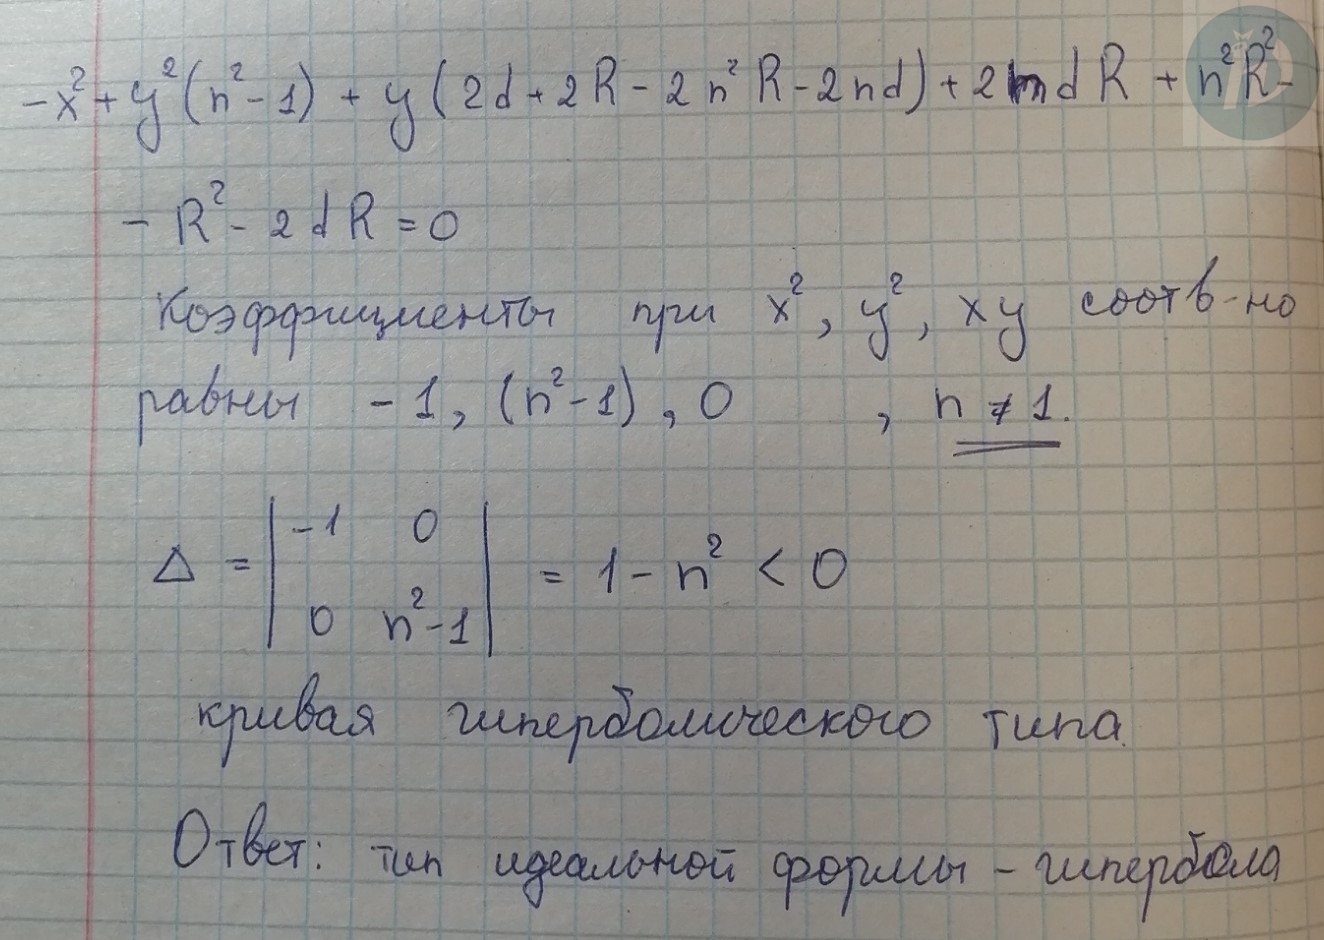 -x² + y²(n²-1) + y(2d + 2R - 2n²R - 2nd) + 2ndR + n²R² -
- R² - 2dR = 0
Коэффициенты при x², y², xy соотв-но
равны -1, (n²-1), 0 , n ≠ 1.
Δ = |-1 0; 0 n²-1| = 1 - n² < 0
кривая гиперболического типа.
Ответ: тип идеальной формы - гипербола